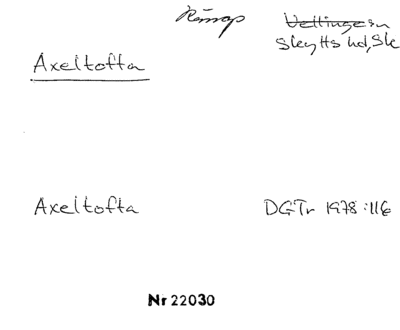 Vellinge sn
Skytts hd, Sk
Axeltofta
Axeltofta DGTr 1978:116
Nr 22030